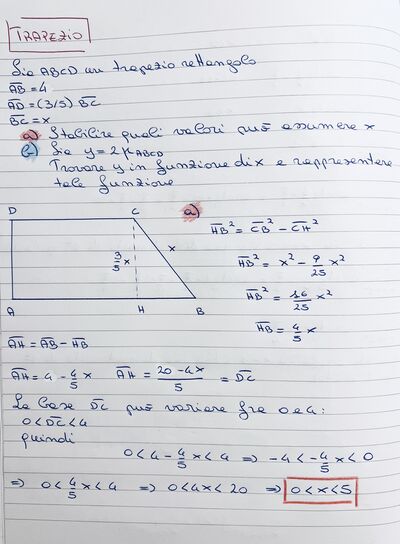 TRAPEZIO
Sia ABCD un trapezio rettangolo
A̅B̅ = 4
A̅D̅ = (3/5) B̅C̅
B̅C̅ = x
a) Stabilire quali valori può assumere x
b) Sia y = 2p ABCD
Trovare y in funzione di x e rappresentare
tale funzione
a)
D C
3/5 x x
A H B
H̅B̅² = C̅B̅² - C̅H̅²
H̅B̅² = x² - 9/25 x²
H̅B̅² = 16/25 x²
H̅B̅ = 4/5 x
A̅H̅ = A̅B̅ - H̅B̅
A̅H̅ = 4 - 4/5 x A̅H̅ = (20 - 4x)/5 = D̅C̅
La base D̅C̅ può variare fra 0 e 4:
0 < D̅C̅ < 4
quindi
0 < 4 - 4/5 x < 4 ⇒ -4 < -4/5 x < 0
⇒ 0 < 4/5 x < 4 ⇒ 0 < 4x < 20 ⇒ 0 < x < 5